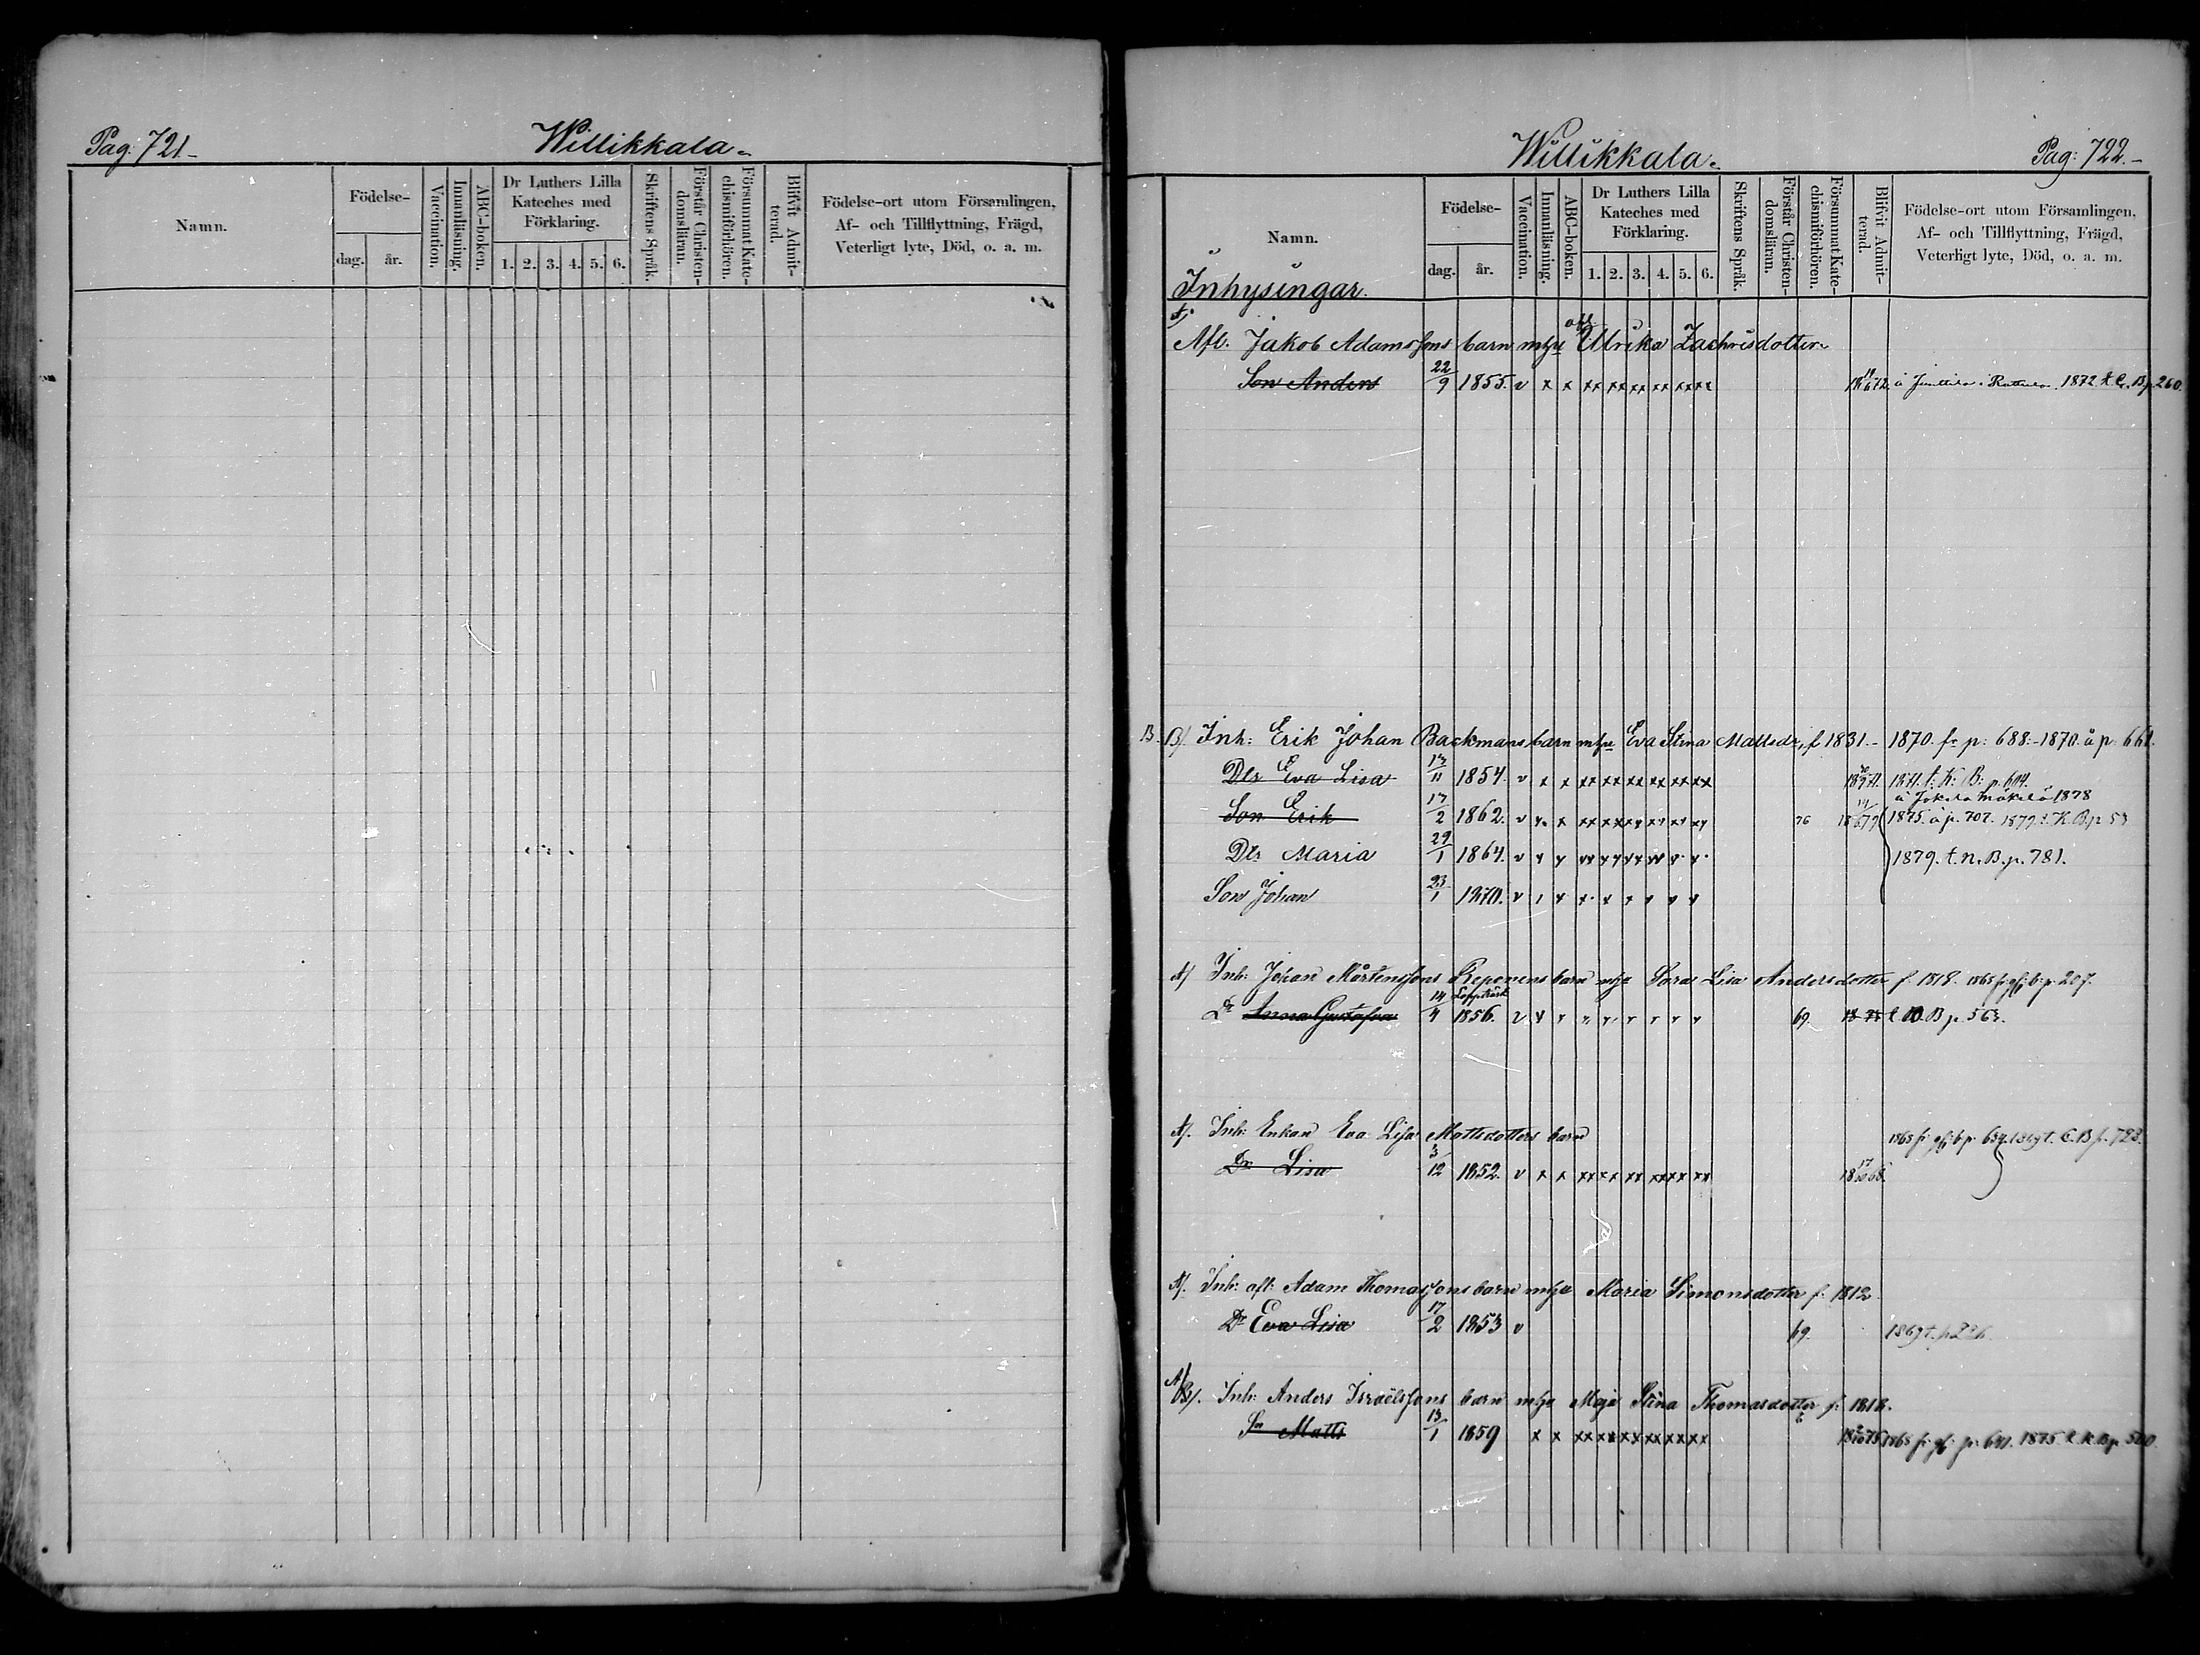 Pag: 721.
Willikkala.
Namn.
Födelse-
dag. år.
Vaccination.
Innanläsning.
ABC-boken.
Dr Luthers Lilla Kateches med Förklaring.
1. 2. 3. 4. 5. 6.
Skriftens Språk.
Förstår Christendomsläran.
Försummat Katechismiförhören.
Blifvit Admitterad.
Födelse-ort utom Församlingen,
Af- och Tillflyttning, Frägd,
Veterligt lyte, Död, o. a. m.
Willikkala.
Pag: 722.
Namn.
Födelse-
dag. år.
Vaccination.
Innanläsning.
ABC-boken.
Dr Luthers Lilla Kateches med Förklaring.
1. 2. 3. 4. 5. 6.
Skriftens Språk.
Förstår Christendomsläran.
Försummat Katechismiförhören.
Blifvit Admitterad.
Födelse-ort utom Församlingen,
Af- och Tillflyttning, Frägd,
Veterligt lyte, Död, o. a. m.
Inhysingar.
Afl. Jakob Adamssons barn mhu afl. Ulrika Zachrisdotter
Son Anders 22/9 1855. v x x xx xx xx xx xx xx 1872 t. C. B p. 260.
B B/. Inh: Erik Johan Backmans barn mhu Eva Stina Mattsdr, f 1831.- 1870. fr p: 688.-1870. å p. 661.
Dtr Eva Lisa 13/11 1854. v x x xx xx xx xx xx xx 1871. t. K: B: p. 604.
å Jokela Mäkelä 1878
Son Erik 17/2 1862. v x x xx xx xx xx xx xx 76 1875. å p. 707. 1879. t. K. B. p 53
Dtr Maria 29/1 1864. v x x xx xx xx xx x x 1879. t. n. B. p. 781.
Son Johan 23/1 1870. v
A/ Inh: Johan Mårtenssons Reponens barn mhu Sara Lisa Andersdotter f. 1818. 1868 fr. b. p. 207.
Dr Anna Gustafva 14/4 1856. v 69. B p. 563.
A/. Inh: Enkan Eva Lisa Mattsdotters barn 1868 fr b p. 639. 1869 t. C. B p. 723.
Dr Lisa 3/12 1852. v x x xx xx xx xx xx xx
A/. Inh: afl: Adam Thomassons barn mhu Maria Simonsdotter f. 1812.
Dr Eva Lisa 17/2 1853 v 69.
A/ B/. Inh: Anders Israëlssons barn mhu Maja Stina Thomasdotter f. 1818.
Sn Matts 13/1 1859 x x xx xx xx xx xx xx 1868 fr p. 641. 1875. t. K. B p. 500.